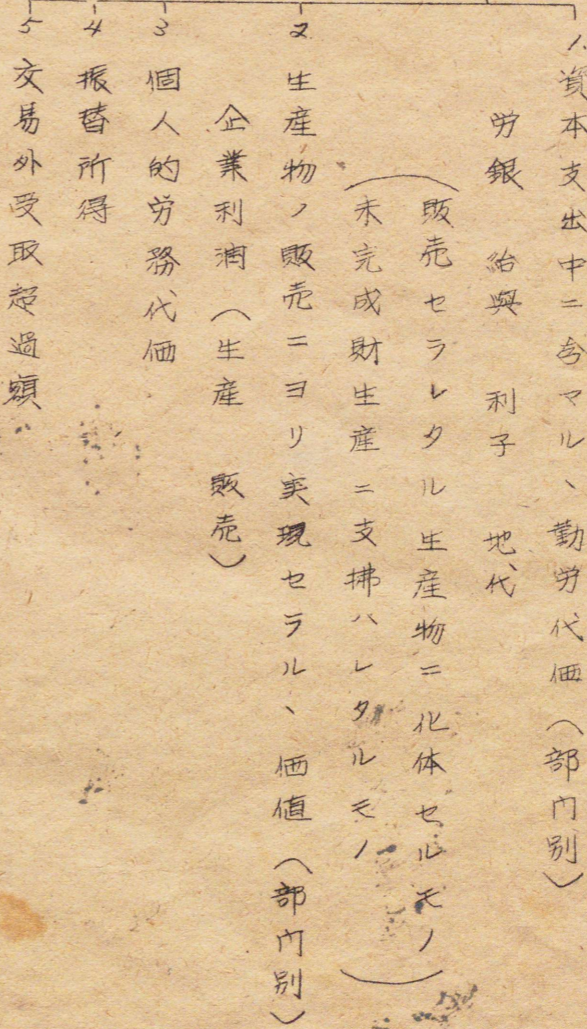 1 資本支出中ニ含マルヽ勤労代価（部門別）
労銀　給与　利子　地代
（販売セラレタル生産物ニ化体セルモノ
未完成財生産ニ支拂ハレタルモノ）
2 生産物ノ販売ニヨリ実現セラルヽ価値（部門別）
企業利潤（生産　販売）
3 個人的労務代価
4 振替所得
5 交易外受取超過額